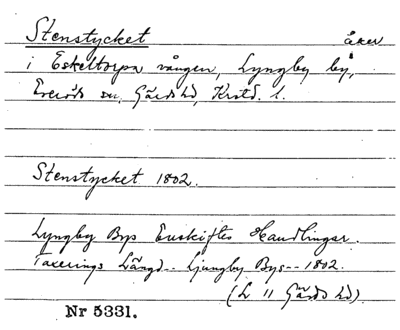 Stenstycket åker
i Eskeltorpa vången, Lyngby by,
Everöds sn, Gärds hd, Krstd. l.
Stenstycket 1802.
Lyngby Bys Enskiftes Handlingar.
Taxerings Längd -- Ljungby Bys -- 1802.
(L 11 Gärds hd)
Nr 5331.